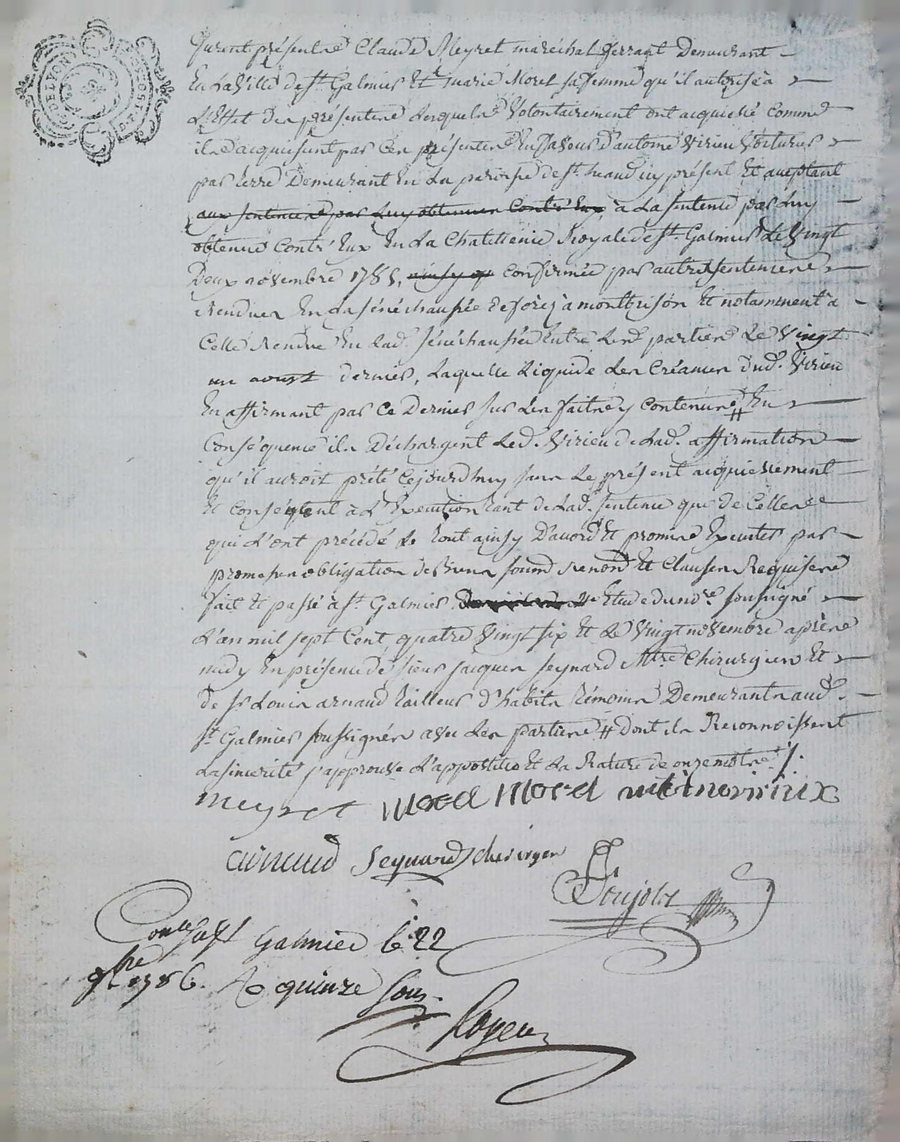 GNLYON
Furent présents Claude Meyret maréchal ferrant Demeurant
En la ville de st. Galmier Et marie Morel sa femme qu'il autorise à
L'Effet des présentes Lesquels volontairement ont acquiescé comme
ils acquiescent par Ces présentes En faveur d'antoine Virieu Voiturier
par terre Demeurant En La paroisse de st. icy présent Et acceptant
aux sentences par Luy obtenues Contr'Eux à La sentence par Luy
obtenue Contr'Eux En La Chatellenie Royale de st. Galmier Le Vingt
Deux novembre 1785, ainsy q confirmée par autres sentences
Rendues En La sénéchaussée de forez à montbrison Et notamment à
Celle Rendue En lad. sénéchaussée Entre Les d. parties Le Vingt
un aoust dernier, Laquelle Liquide Les Créances dud. Virieu
En affirmant par Ce Dernier sur Les faits y Contenus # En
Conséquence ils Déchargent Led. Virieu de Lad. affirmation
qu'il auroit prêté Cejourdhuy sans Le présent acquiessement
Et Consentent à L'Execution tant de Lad. sentence que de Celles
qui L'ont précédé Le tout ainsy D'acord Et promis Executer par
promesses obligation de biens soumd. renond. Et Clauses Requises
fait Et passé à st. Galmier Etude du no.re soussigné
L'an mil sept Cent quatre Vingt six Et Le Vingt novembre après
midy En présence de sieur Jacques Seynard M.tre Chirurgien Et
de sr Louis arnaud tailleur d'habits témoins Demeurant aud.
st. Galmier soussignés avec Les parties # dont ils Reconnoissent
La sincerité j'approuve L'apposition Et La Rature de onze mots /.
meyret Morel antinoi viriux
arnaud Seynard chirurgien
Poujols
Con.lé à st Galmier le 22
9bre 1786. R quinze sous.
Royeu